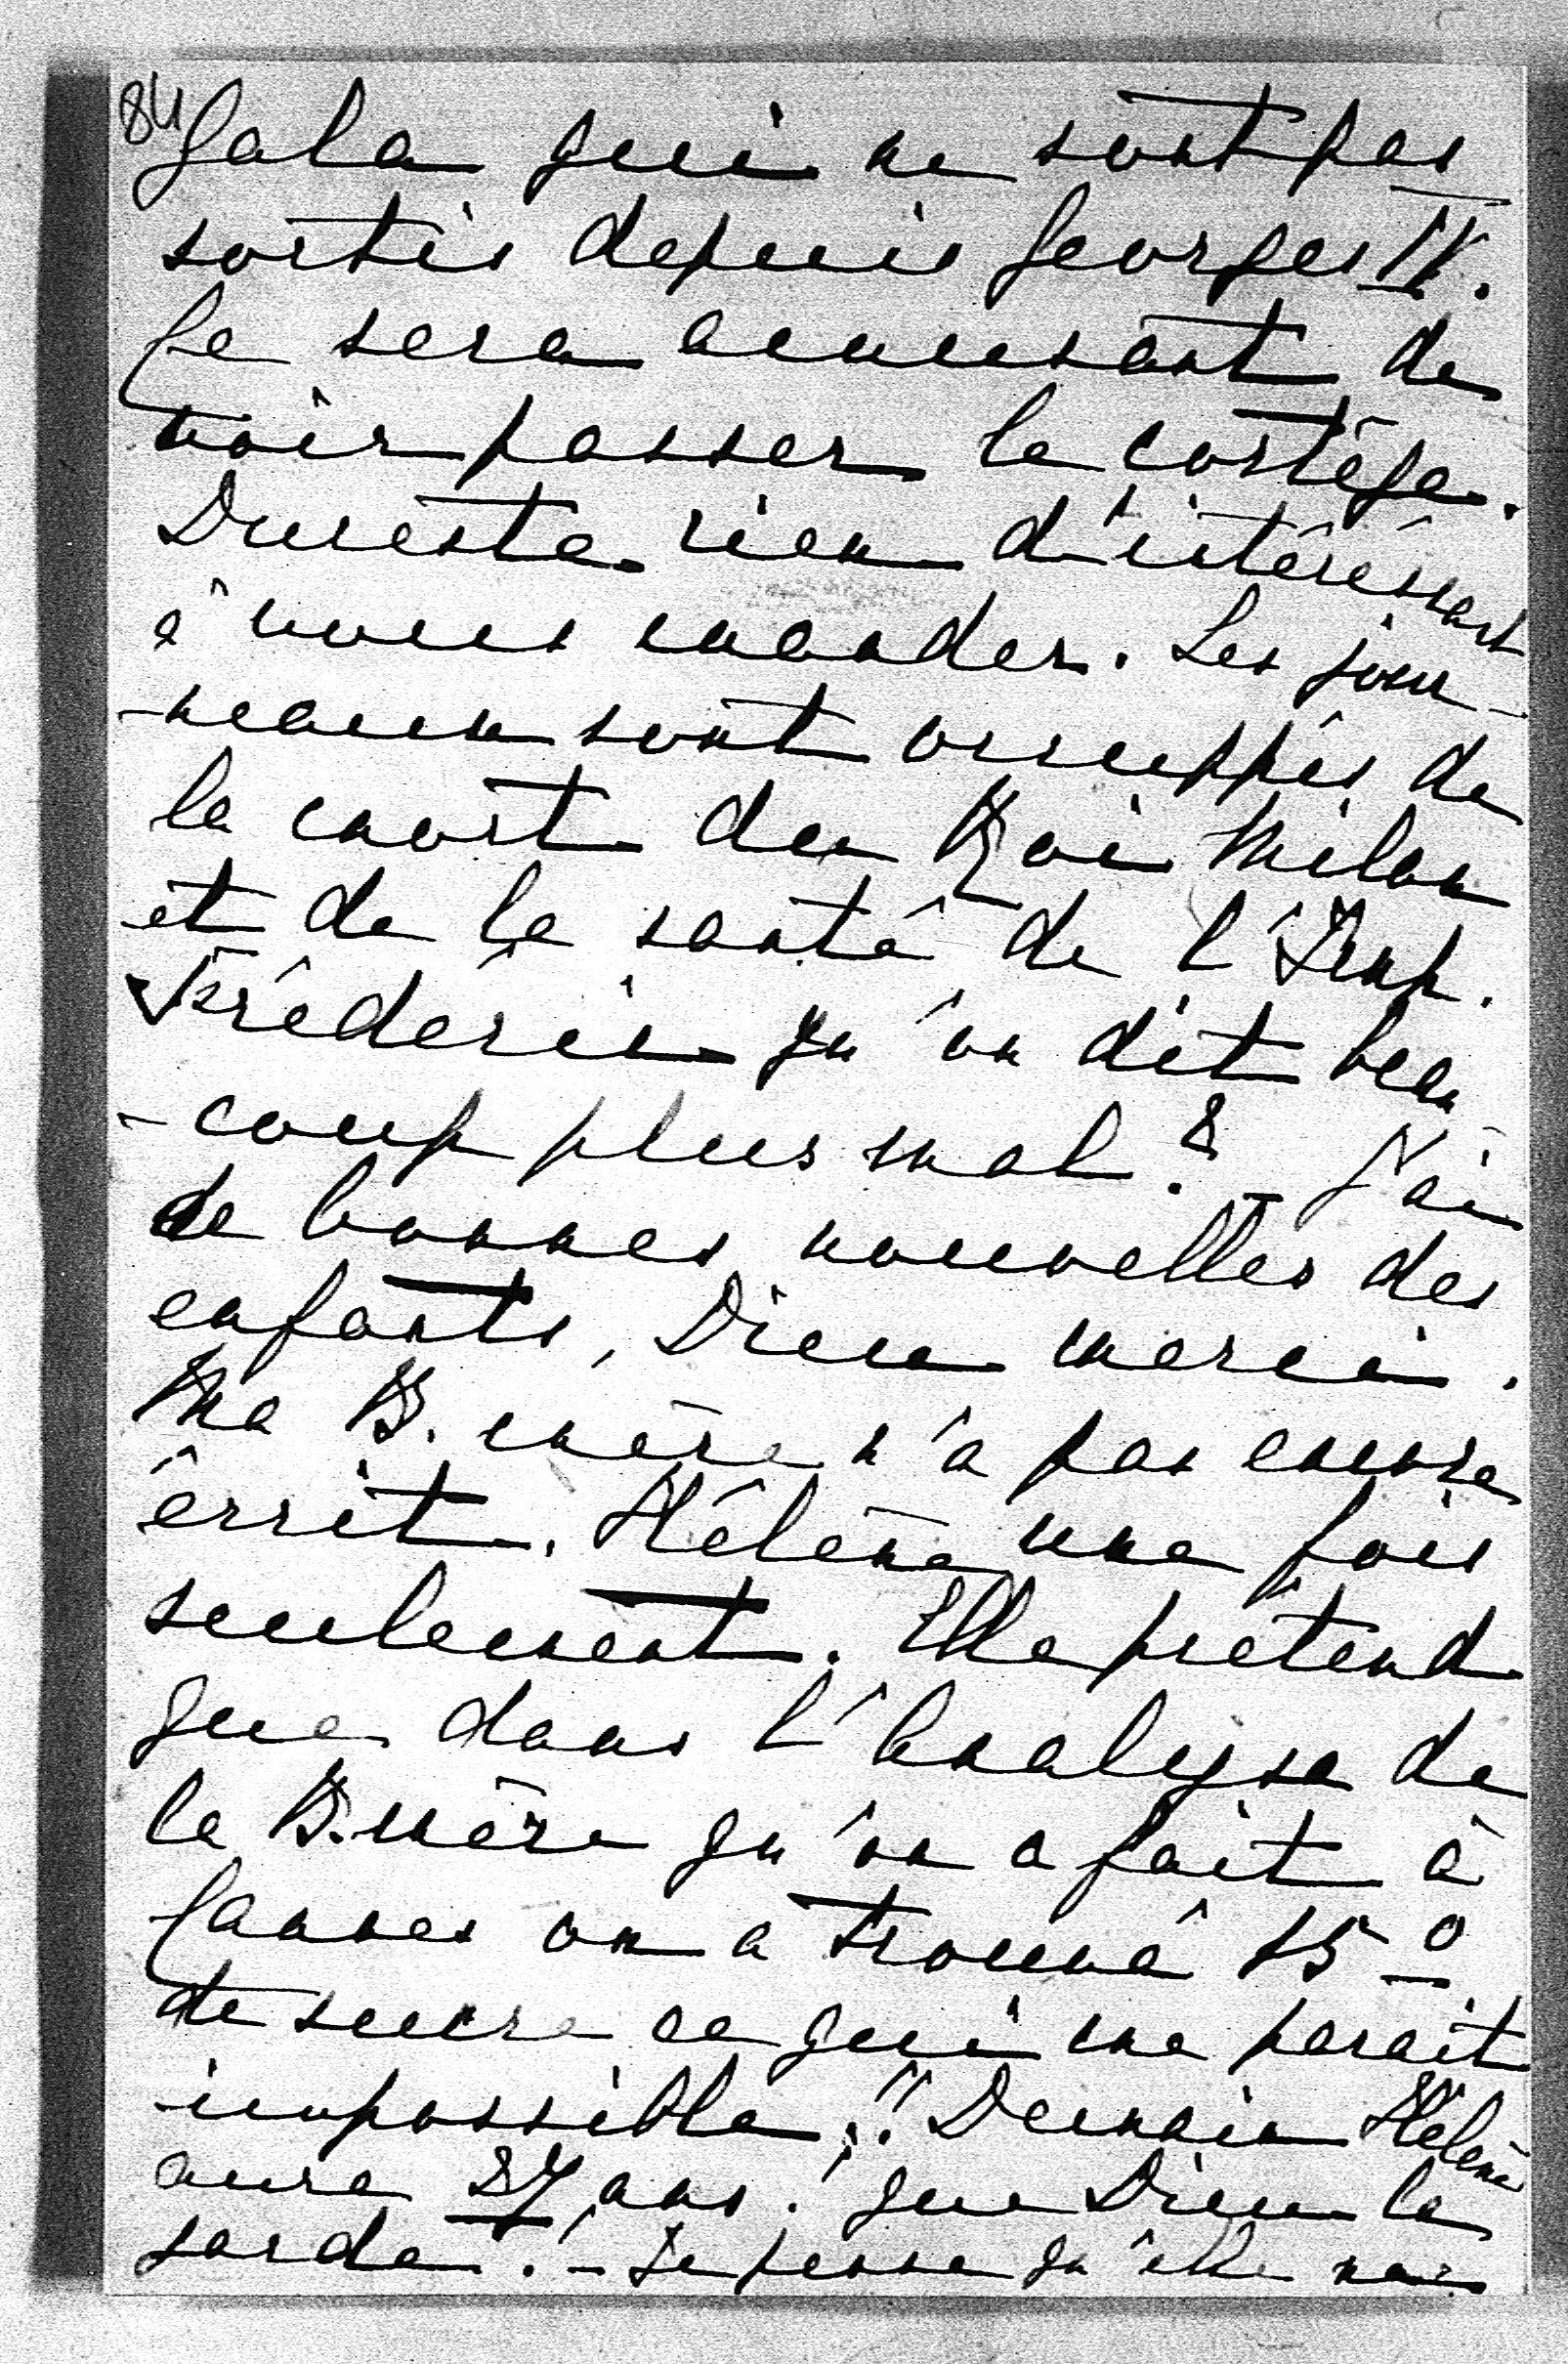 84
Gala qui ne sont pas
sortis depuis Georges IV.
Ce sera amusant de
voir passer le cortège.
Dureste rien d'intéréssant
à vous mander. Les jour-
-neaux sont occuppés de
la mort du Roi Milan
et de la santé de l'Imp.
Fréderic qu'on dit beau-
-coup plus mal? – J'ai
de bonnes nouvelles des
enfants, Dieu merci.
Ma B. mère n'a pas encore
écrit. Hélène une fois
seulement. Elle prétend
que dans l'Analyse de
la B.mère qu'on a fait à
Cannes on a trouvé 15 º
de sucre ce qui me parait
impossible!! Demain Hélène
aura 27 ans! que Dieu la
garde! – Je pense qu'elle